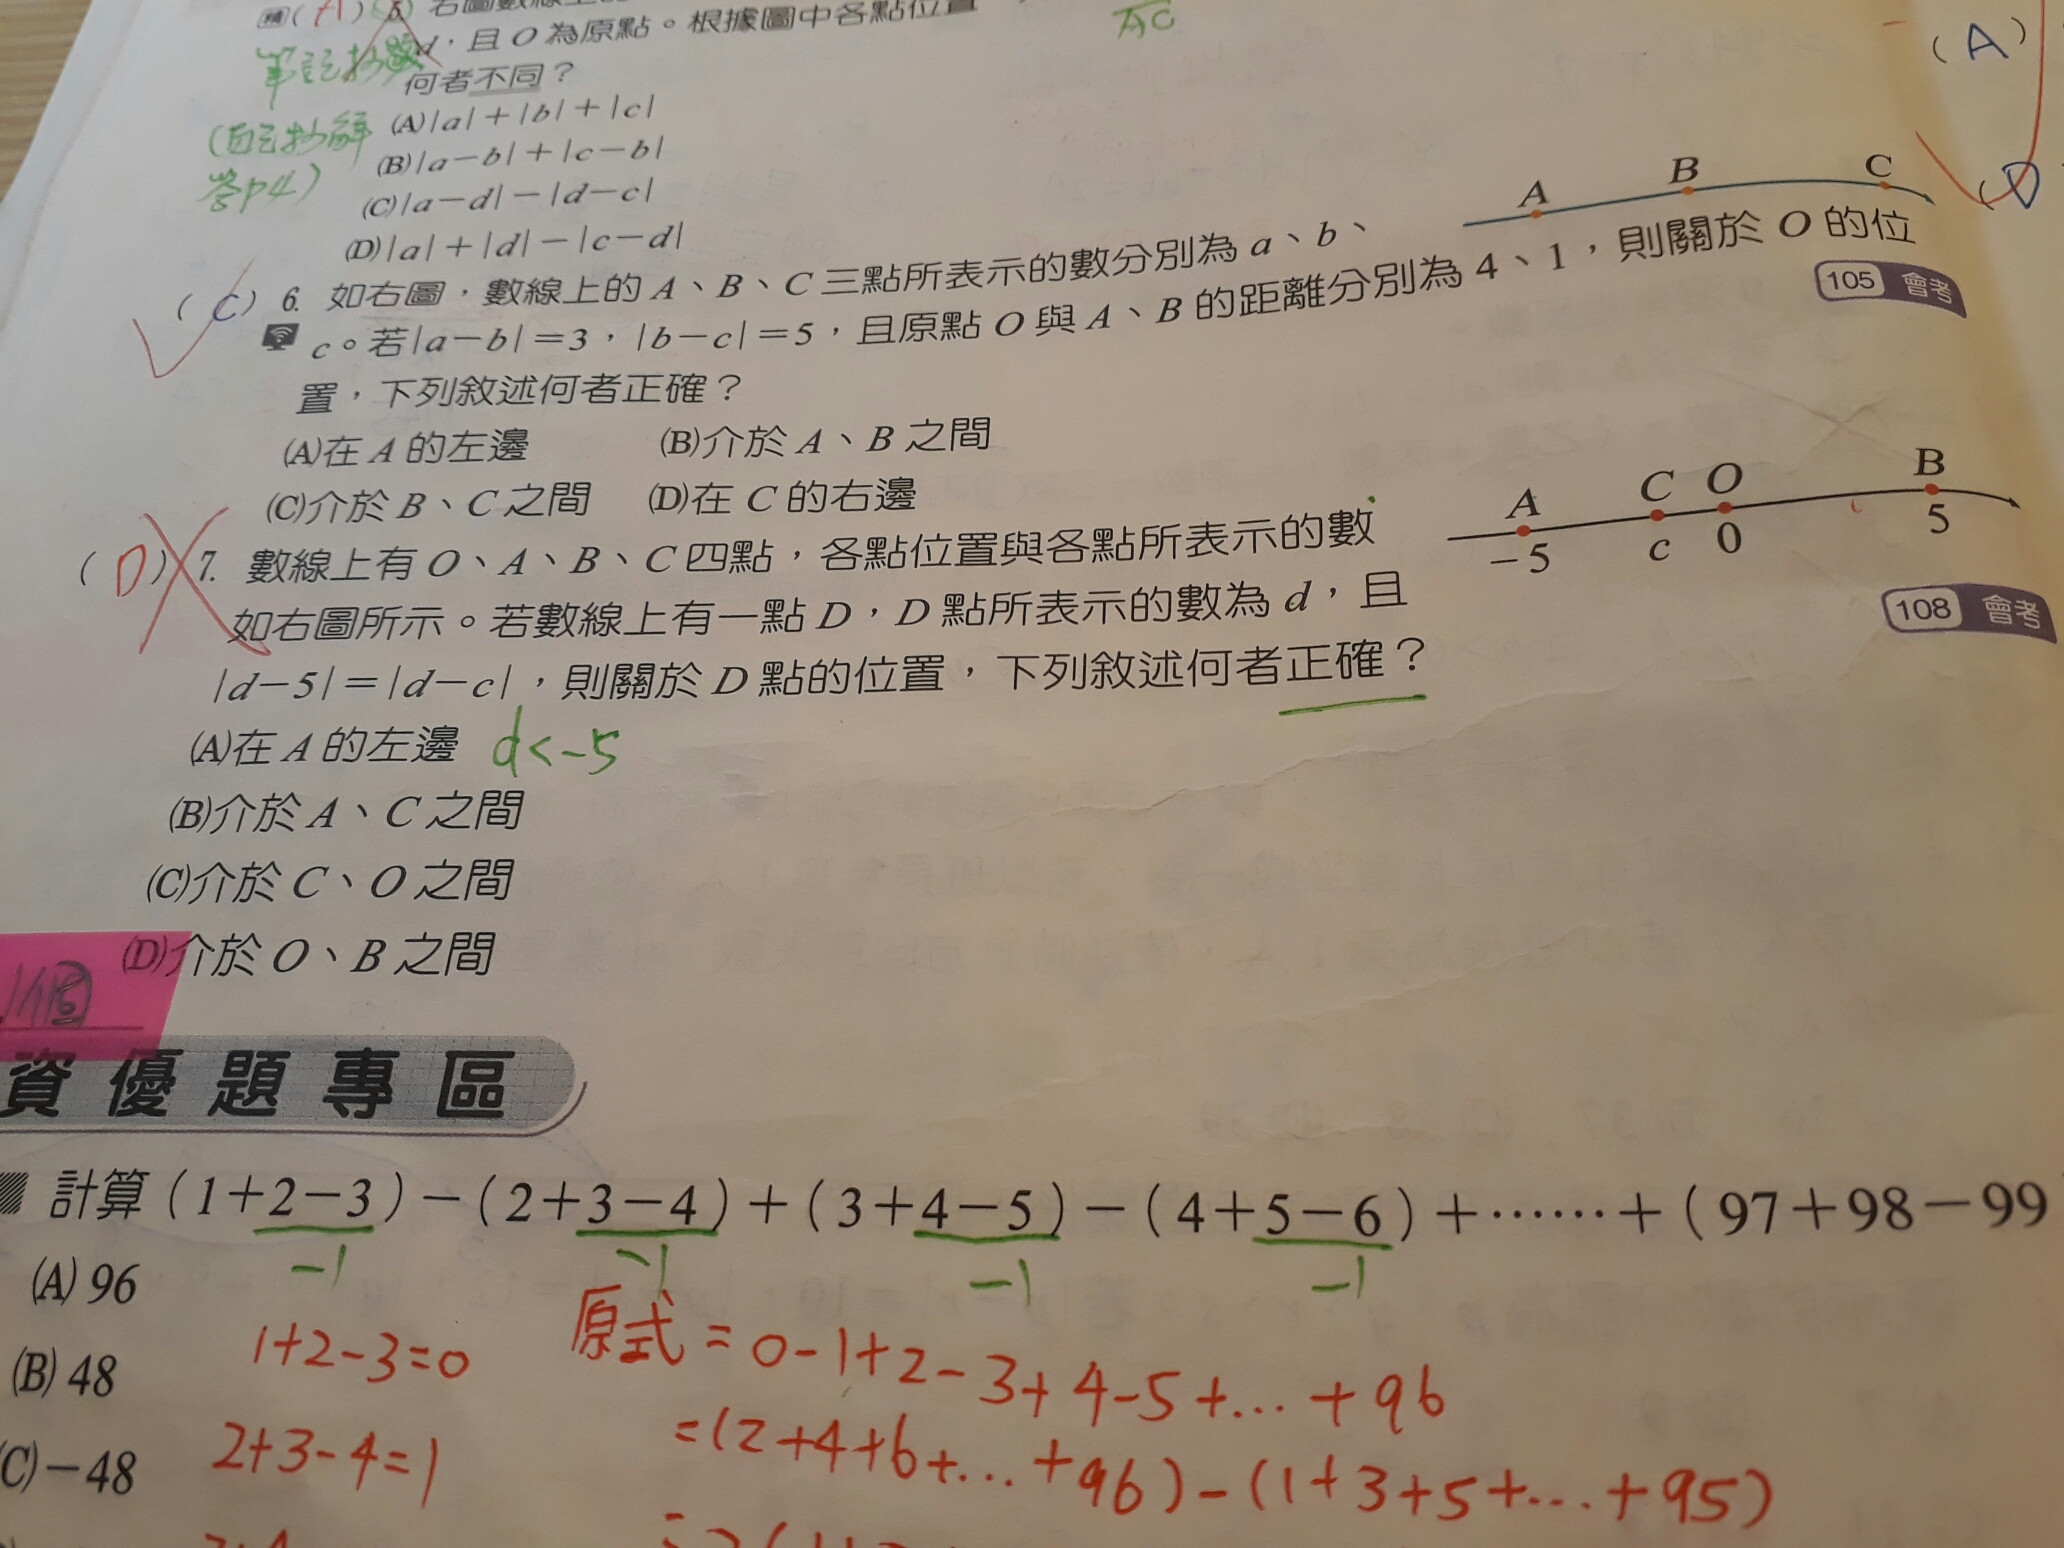 (A)
d，且O為原點。根據圖中各點位置
AC
筆記抄題
何者不同？
(自己抄解答P4)
(A)|a|+|b|+|c|
(B)|a-b|+|c-b|
(C)|a-d|-|d-c|
(D)|a|+|d|-|c-d|
(A)
(D
A B C
(C) 6. 如右圖，數線上的A、B、C三點所表示的數分別為a、b、
c。若|a-b|=3，|b-c|=5，且原點O與A、B的距離分別為4、1，則關於O的位
置，下列敘述何者正確？
105 會考
(A)在A的左邊 (B)介於A、B之間
(C)介於B、C之間 (D)在C的右邊
A C O B
-5 c 0 5
(D) 7. 數線上有O、A、B、C四點，各點位置與各點所表示的數
如右圖所示。若數線上有一點D，D點所表示的數為d，且
|d-5|=|d-c|，則關於D點的位置，下列敘述何者正確？
108 會考
(A)在A的左邊 d<-5
(B)介於A、C之間
(C)介於C、O之間
(D)介於O、B之間
資優題專區
計算(1+2-3)-(2+3-4)+(3+4-5)-(4+5-6)+……+(97+98-99
-1 -1 -1 -1
(A) 96
(B) 48
(C)-48
1+2-3=0
2+3-4=1
原式=0-1+2-3+4-5+…+96
=(2+4+6+…+96)-(1+3+5+…+95)